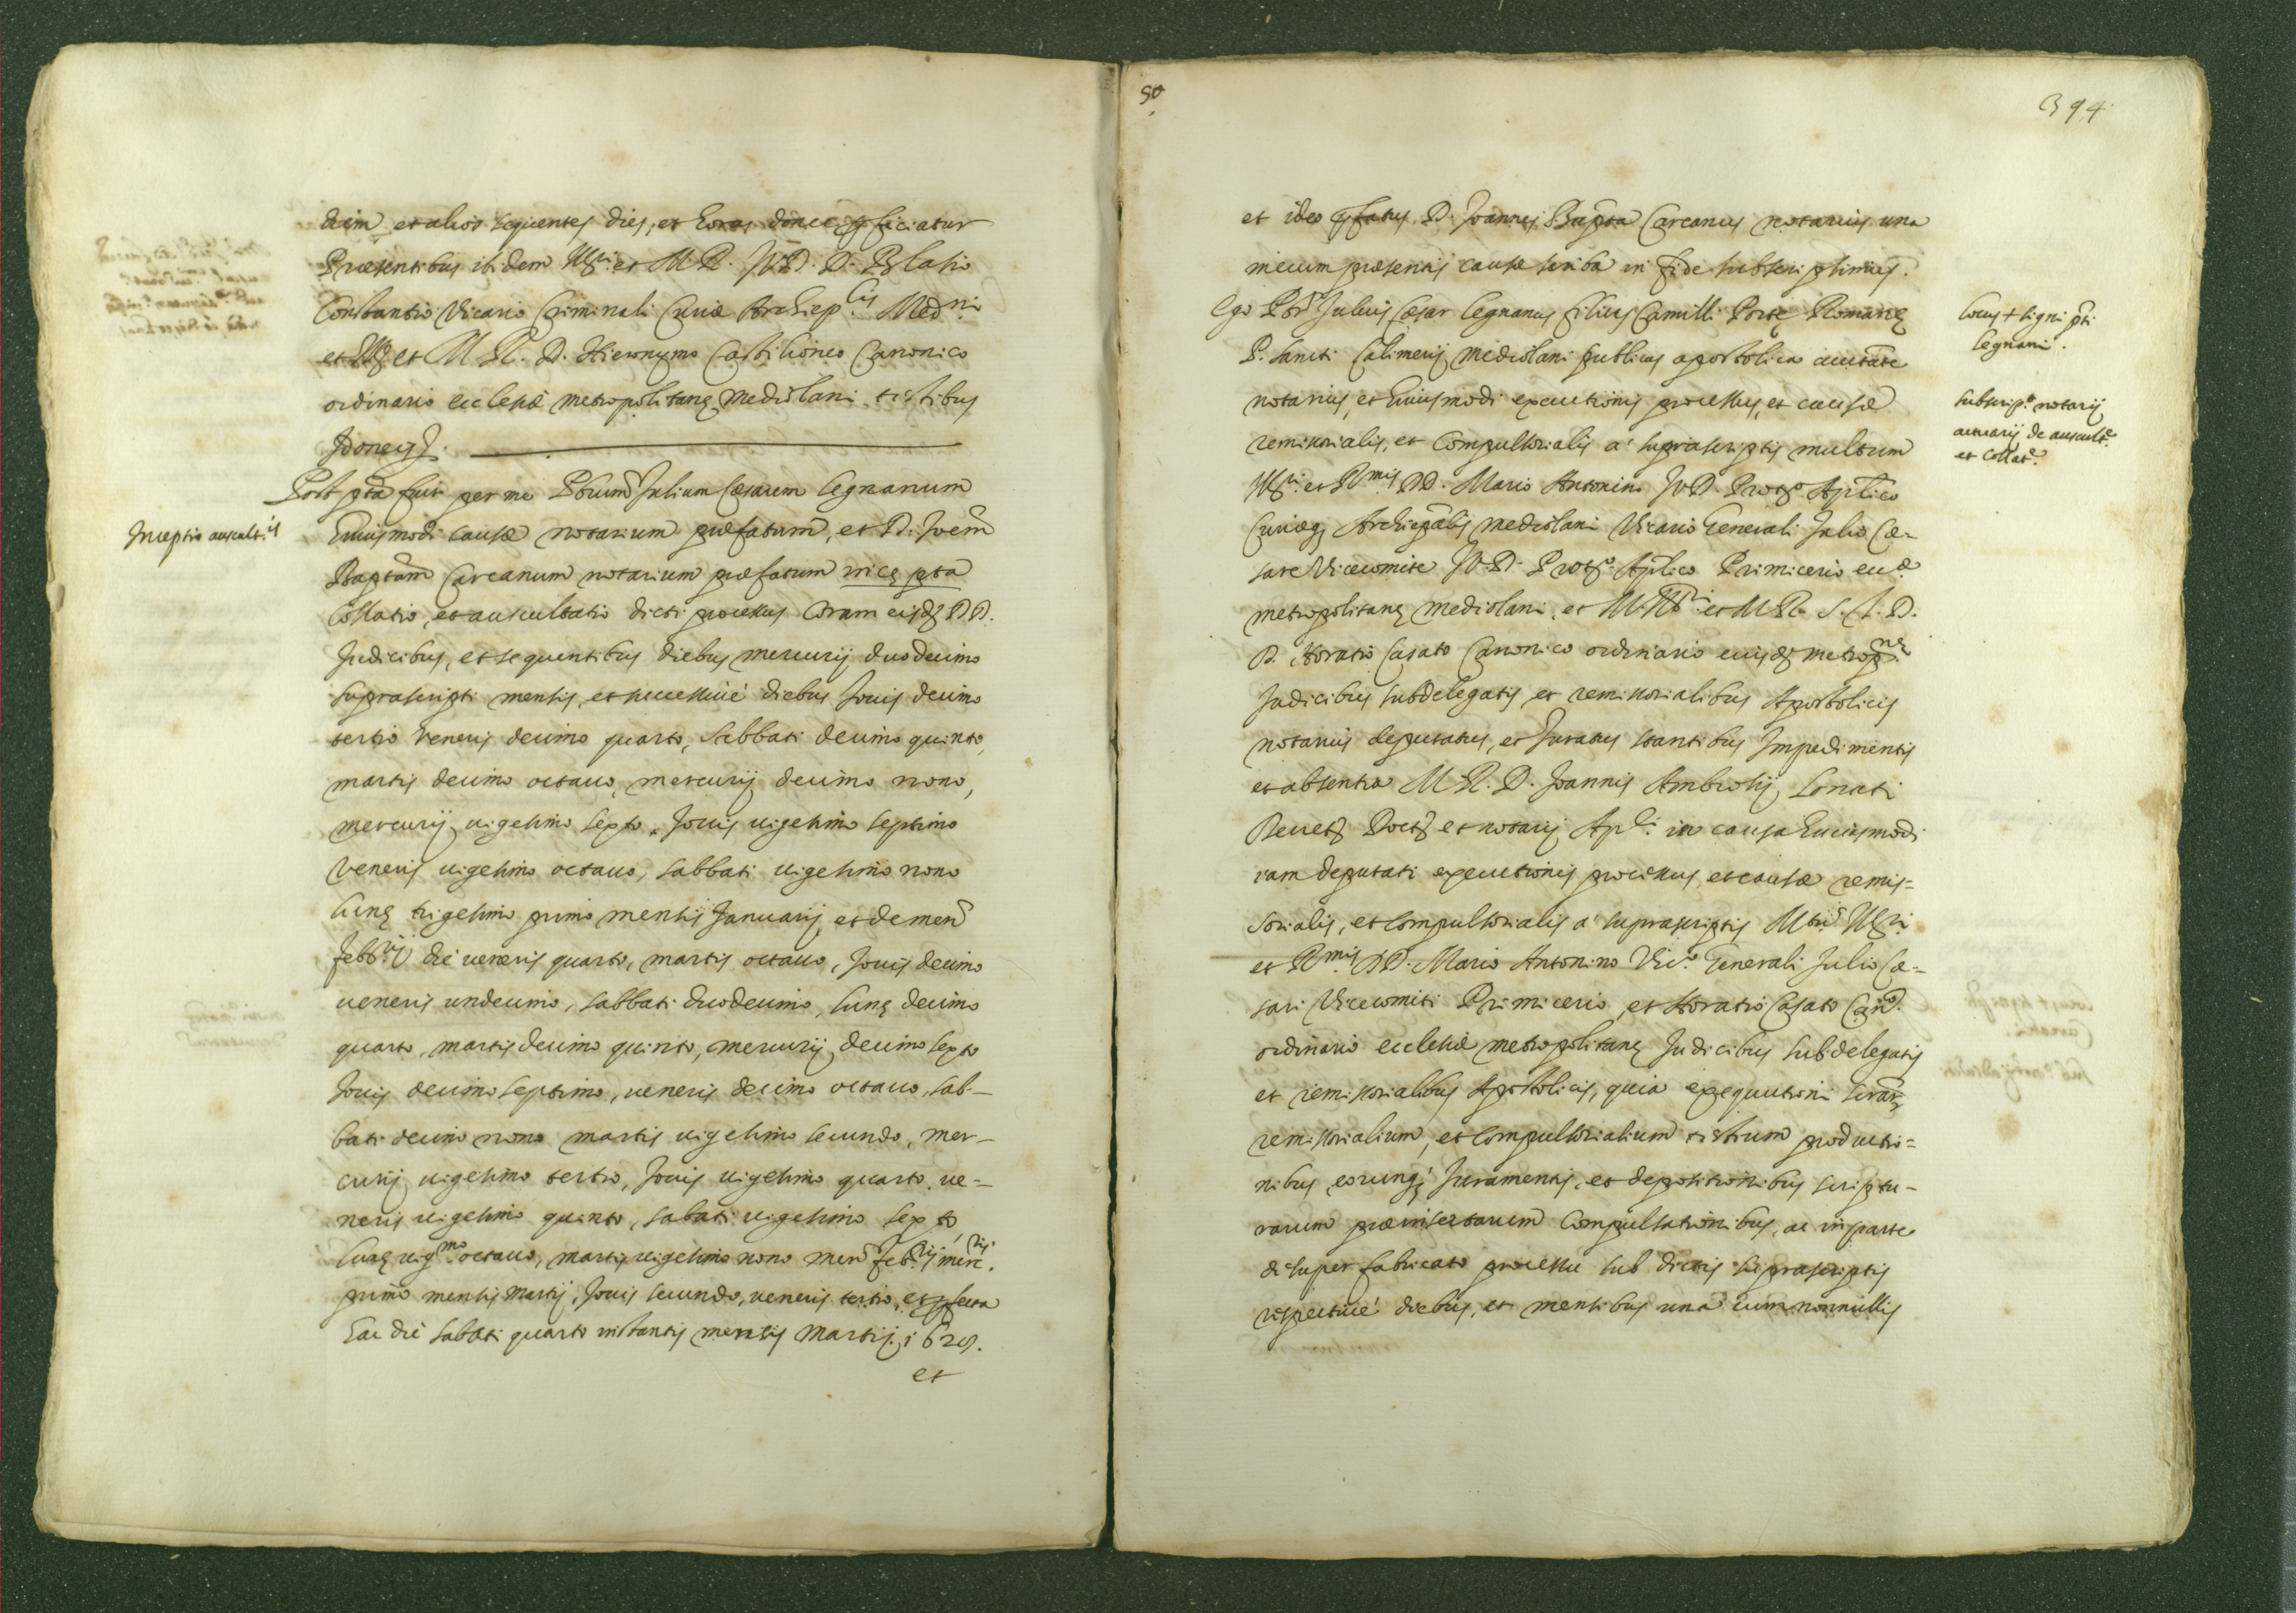 diem et alios sequentes dies, et horas donec perficiatur
Præsentibus ibidem Ill.ri et M. R. J. V. D. D. Blasio
Constantio Vicario Criminali Curiæ Archiep.lis Med.ni
et Ill. et M. R. D. Hieronymo Castilioneo Canonico
ordinario ecclesiæ metropolitanę Mediolani testibus
Idoneis.
Post pta fuit per me Pbrum Julium Cæsarem Legnanum
Inceptio auscult.is
huiusmodi causæ notarium præfatum, et D. Joem
Baptam Carcanum notarium præfatum incępta
Collatio, et auscultatio dicti processus Coram eisdem DD.
Judicibus, et sequentibus diebus mercurij duodecimo
suprascripti mensis, et successiuè diebus Jouis decimo
tertio veneris decimo quarto, Sabbati decimo quinto,
martis decimo octauo, mercurij decimo nono,
mercurij uigesimo sexto, Jouis uigesimo septimo
veneris uigesimo octauo, sabbati uigesimo nono
lunę trigesimo primo mensis Januarij, et de men
Febb.rij die ueneris quarto, martis octauo, Jouis decimo
ueneris undecimo, sabbati duodecimo, lunę decimo
quarto, martis decimo quinto, mercurij decimo sexto
Jouis decimo septimo, ueneris decimo octauo, sab-
bati decimo nono martis uigesimo secundo, mer-
curij uigesimo tertio, Jouis uigesimo quarto, ue-
neris uigesimo quinto, sabati uigesimo sexto,
lunę uig.mo octauo, martis uigesimo nono men Feb.rij merc.rij
primo mensis Martij, Jouis secundo, ueneris tertio, et perfecta
hac die sabati quarto instantis mensis Martij. 1628.
et
50
394
et ideo pfatus D. Joannes Bapta Carcanus notarius una
mecum præsentis causæ scriba in fide subscripsimus.
Ego Pbr Julius Cæsar Legnanus filius Camilli Portę Romanę
Locus + signi pti
Legnani.
P. Sancti Calimerij Mediolani publicus apostolica auctate
Subscrip.o notarij
actuarij de auscult.e
et Collat.e
notarius, et huiusmodi executionis processus, et causæ
remissorialis, et Compulsorialis a' suprascriptis multum
Ill.ri et R.mis DD. Mario Antonino J. V. D. Prot.o Aplico
Curiæq Archiepalis Mediolani Vicario Generali Julio Cæ-
sare Vicecomite J. V. D. Prot.o Aplico Primicerio eccl.æ
metropolitanę Mediolani, et M. Ill.ri et M. R. S. T. D.
D. Horatio Casato Canonico ordinario eiusdem metrop.nę
Judicibus subdelegatis et remissorialibus Apostolicis
notarius deputatus, et Juratus stantibus Impedimentis
et absentia M. R. D. Joannis Ambrosij Lonati
et notarij Apl.ci in causa huiusmodi
iam deputati executionis processus, et causæ remis=
sorialis, et compulsorialis a' suprascriptis Mtu Ill.ri
et R.mis DD. Mario Antonino Vic.o Generali Julio Cæ-
sari Vicecomiti Primicerio, et Horatio Casato Can.co
ordinario ecclesiæ metropolitanę Judicibus subdelegatis
et remissorialibus Apostolicis, quia exequutioni lrarum
remissorialium, et Compulsorialium testium productio=
nibus, eorunq Juramentis, et depositionibus scriptu-
rarum præinsertarum Compulsationibus, ac in parte
desuper fabricato processu sub dictis suprascriptis
respectiuè diebus, et mensibus unà cum nonnullis